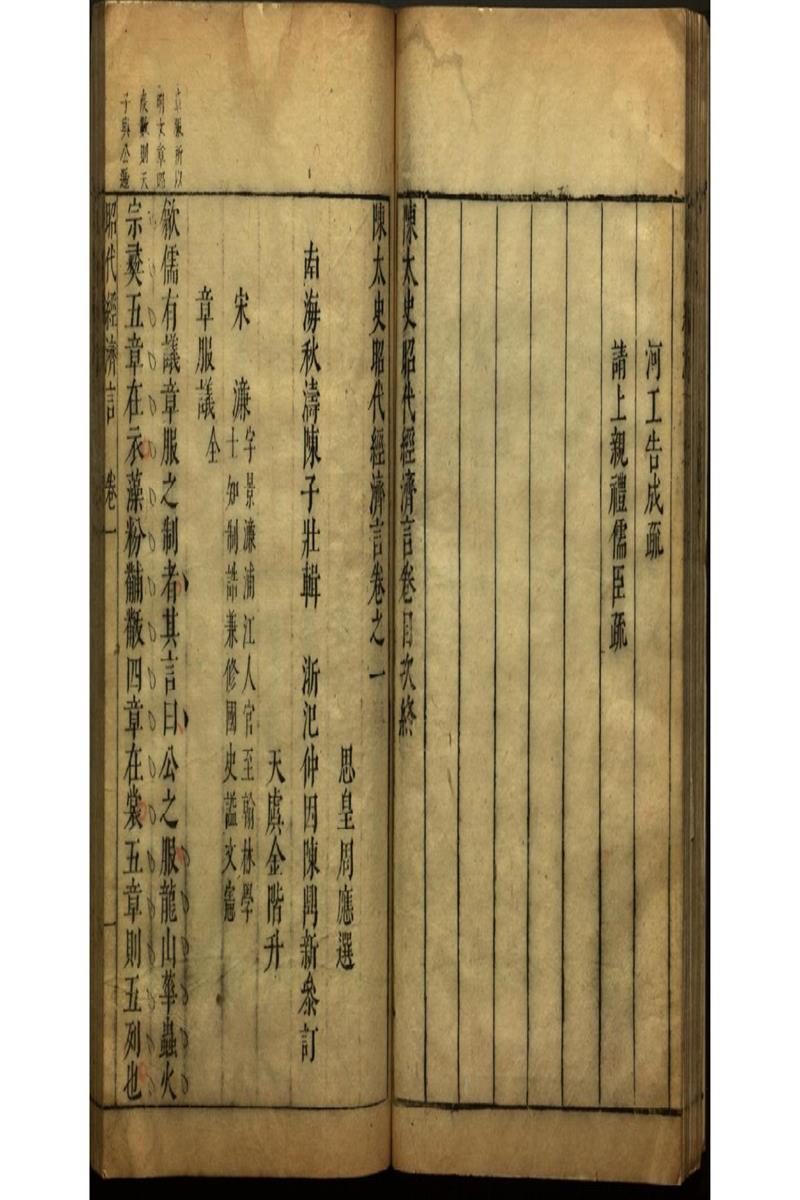 河工告成疏
請上親禮儒臣疏
陳太史昭代經濟言卷目次終
陳太史昭代經濟言卷之一
思皇周應選
南海秋濤陳子壯輯 浙汜仲因陳閈新叅訂
天虞金階升
宋濂 字景濂浦江人官至翰林學
士知制誥兼修國史謚文憲
章服議 全
歙儒有議章服之制者其言曰公之服龍山華蟲火
宗彝五章在衣藻粉黼黻四章在裳五章則五列也
昭代經濟言 卷一 一
章服所以
明文章昭
度數則天
子與公